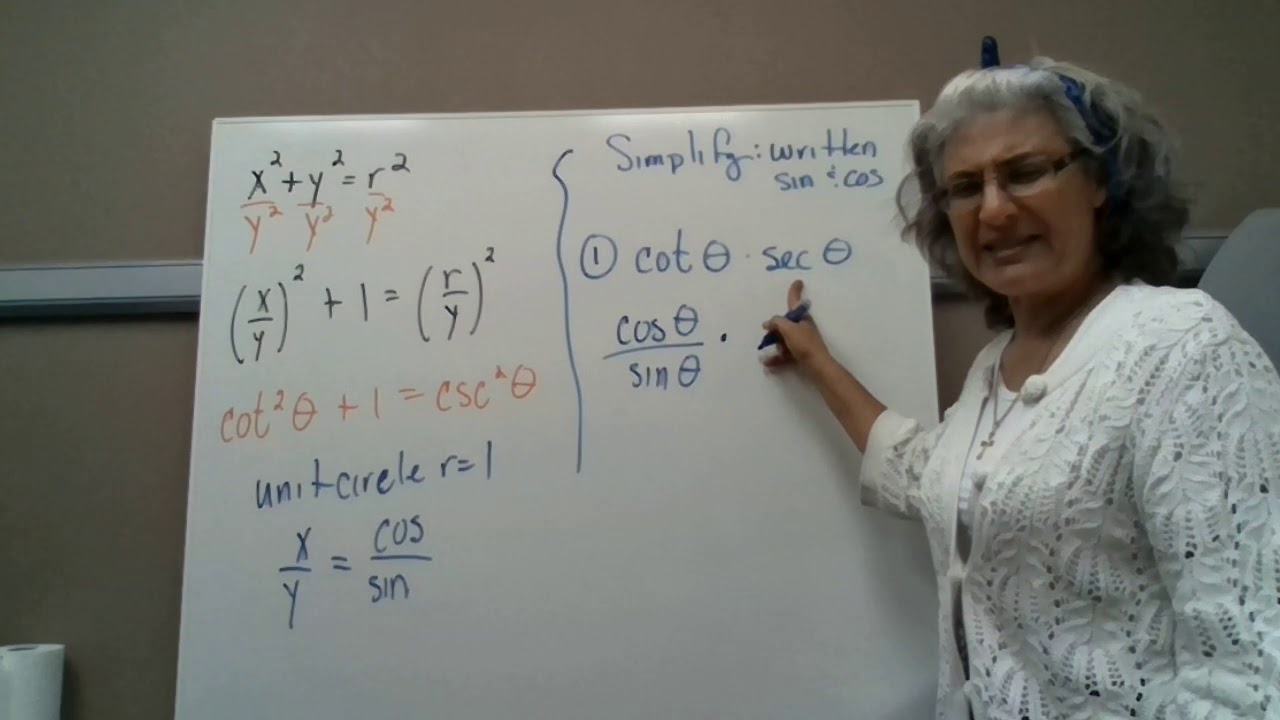 x² + y² = r²
y² y² y²
(x/y)² + 1 = (r/y)²
cot²θ + 1 = csc²θ
unit circle r=1
x/y = cos/sin
Simplify: written
sin & cos
① cot θ · sec θ
cosθ/sinθ ·